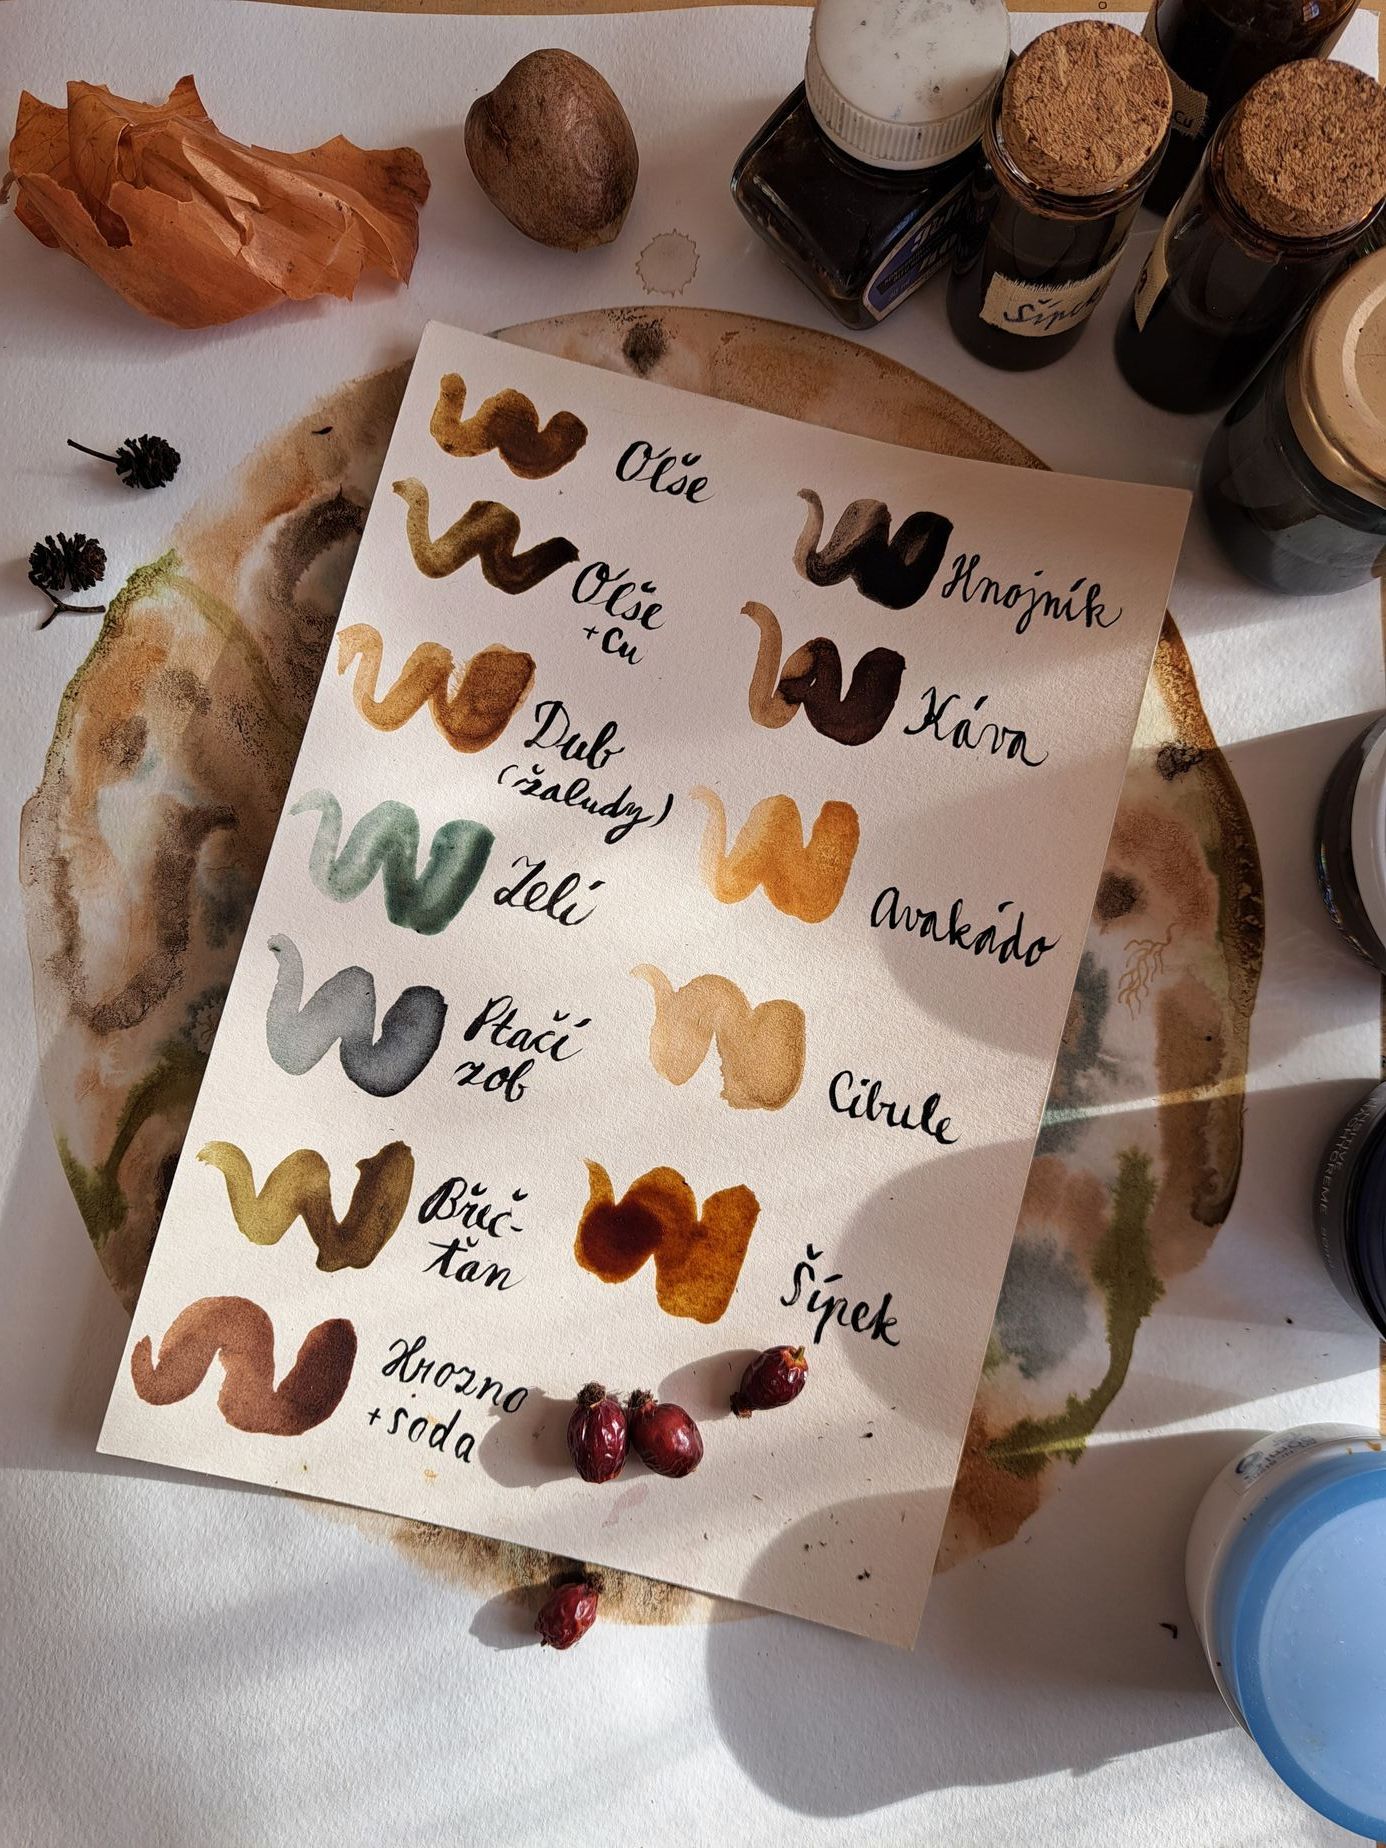 Olše
Olše
+Cu
Dub
(žaludy)
Zelí
Ptačí
zob
Břeč-
ťan
Hrozno
+soda
Hnojník
Káva
Avakádo
Cibule
Šípek